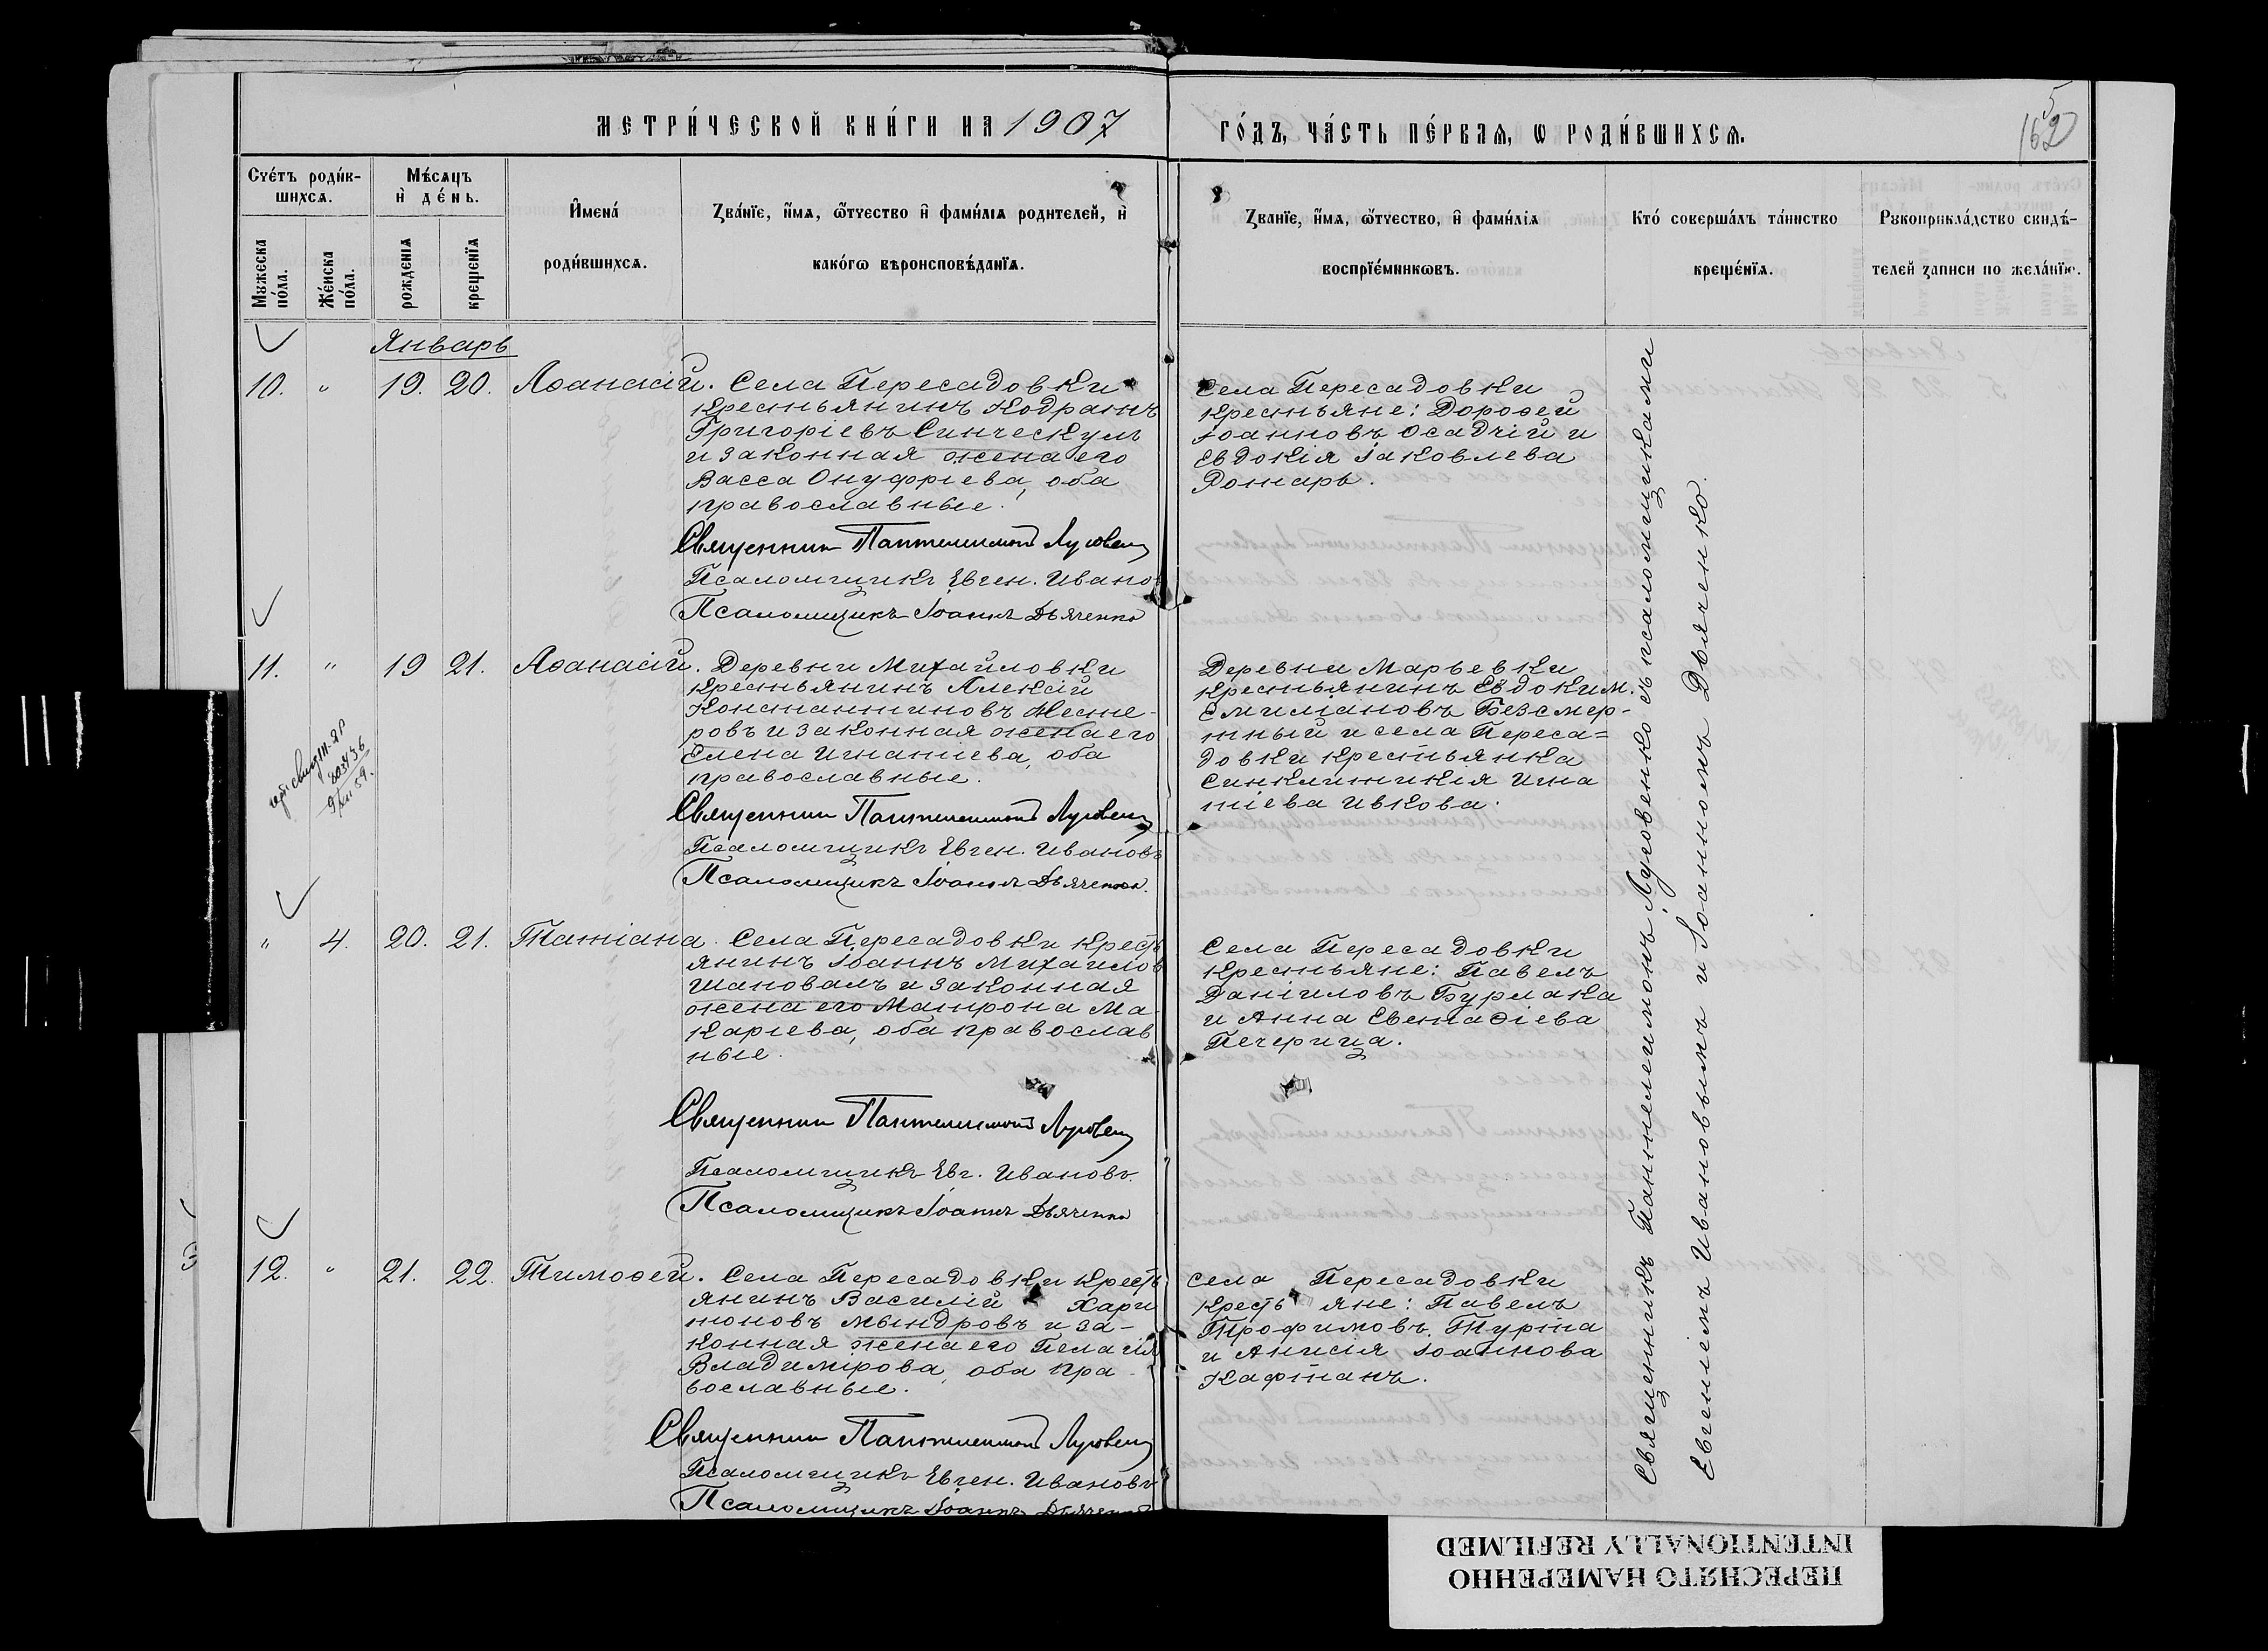 МЕТРИ́ЧЕСКОЙ КНИ́ГИ НА 1907
ГО́ДЪ, ЧА́СТЬ ПЕ́РВАѦ, Ѡ РОДИ́ВШИХСѦ.
5
162
Счéтъ роди́в-
шихсѧ.
Мѣ́сѧцъ
и҆ дéнь.
Мꙋжеска
по́ла.
Же́нска
по́ла.
рождєнїѧ
крещєнїѧ
И҆мена́
роди́вшихсѧ.
Ꙁва́нїе, и҆́мѧ, ѻ҆́тчество и҆ фами́лїѧ родителей, и҆
како́гѡ вѣроисповѣ́данїѧ.
Ꙁванїе, и҆́мѧ, ѻ҆́тчество, и҆ фами́лїѧ
воспрїе́мникѡвъ.
Кто́ соверша́лъ та́инство
креще́нїѧ.
Рꙋкоприкла́дство свидѣ́-
телей ꙁаписи по жела́нїю.
Январь
10. " 19. 20. Аѳанасій.
Села Пересадовки
крестьянинъ Кодратъ
Григоріевъ Синческулъ
и законная жена его
Васса Онуфріева, оба
православные.
Священник Пантелеимонъ Луговен
Псаломщикъ Евген. Ивано
Псаломщикъ Іоаннъ Дьяченко
Села Пересадовки
крестьяне: Дороѳей
Іоанновъ Осадчій и
Евдокія Іаковлева
Ротарь.
11. " 19 21. Аѳанасій.
Деревни Михайловки
крестьянинъ Алексій
Константиновъ Несте-
ровъ и законная жена его
Елена Игнатіева, оба
православные.
Священник Пантелеимонъ Луговен
Псаломщикъ Евген. Ивановъ
Псаломщикъ Іоаннъ Дьяченко.
Деревни Марьевки
крестьянинъ Евдоким.
Емиліановъ Безсмер-
тный и села Переса=
довки крестьянка
Синклитикія Игна
тіева Ивкова.
" 4. 20. 21. Татіана.
Села Пересадовки кресть
янинъ Іоаннъ Михаилов
Шаповалъ и законная
жена его Матрона Ма
каріева, оба православ
ные.
Священник Пантелеимонъ Луговен
Псаломщикъ Евг. Ивановъ.
Псаломщикъ Іоаннъ Дьяченко
Села Пересадовки
крестьяне: Павелъ
Даніиловъ Бурлака
и Анна Евстаѳіева
Печерица.
12. " 21. 22. Тимоѳей.
Села Пересадовки кресть
янинъ Василій Хари
тоновъ Мындровъ и за-
конная жена его Пелагія
Владимірова, оба пра
вославные.
Священник Пантелеимонъ Луговен
Псаломщикъ Евген. Ивановъ
Псаломщикъ Іоаннъ Дьяченко
села Пересадовки
кресть яне: Павелъ
Трофимовъ Турта
и Анисія Іоаннова
Кафтанъ.
Священникъ Пантелеимонъ Луговенко съ псаломщиками
Евгеніемъ Ивановымъ и Іоанномъ Дьяченко.
ПЕРЕСНЯТО НАМЕРЕННО
INTENTIONALLY REFILMED